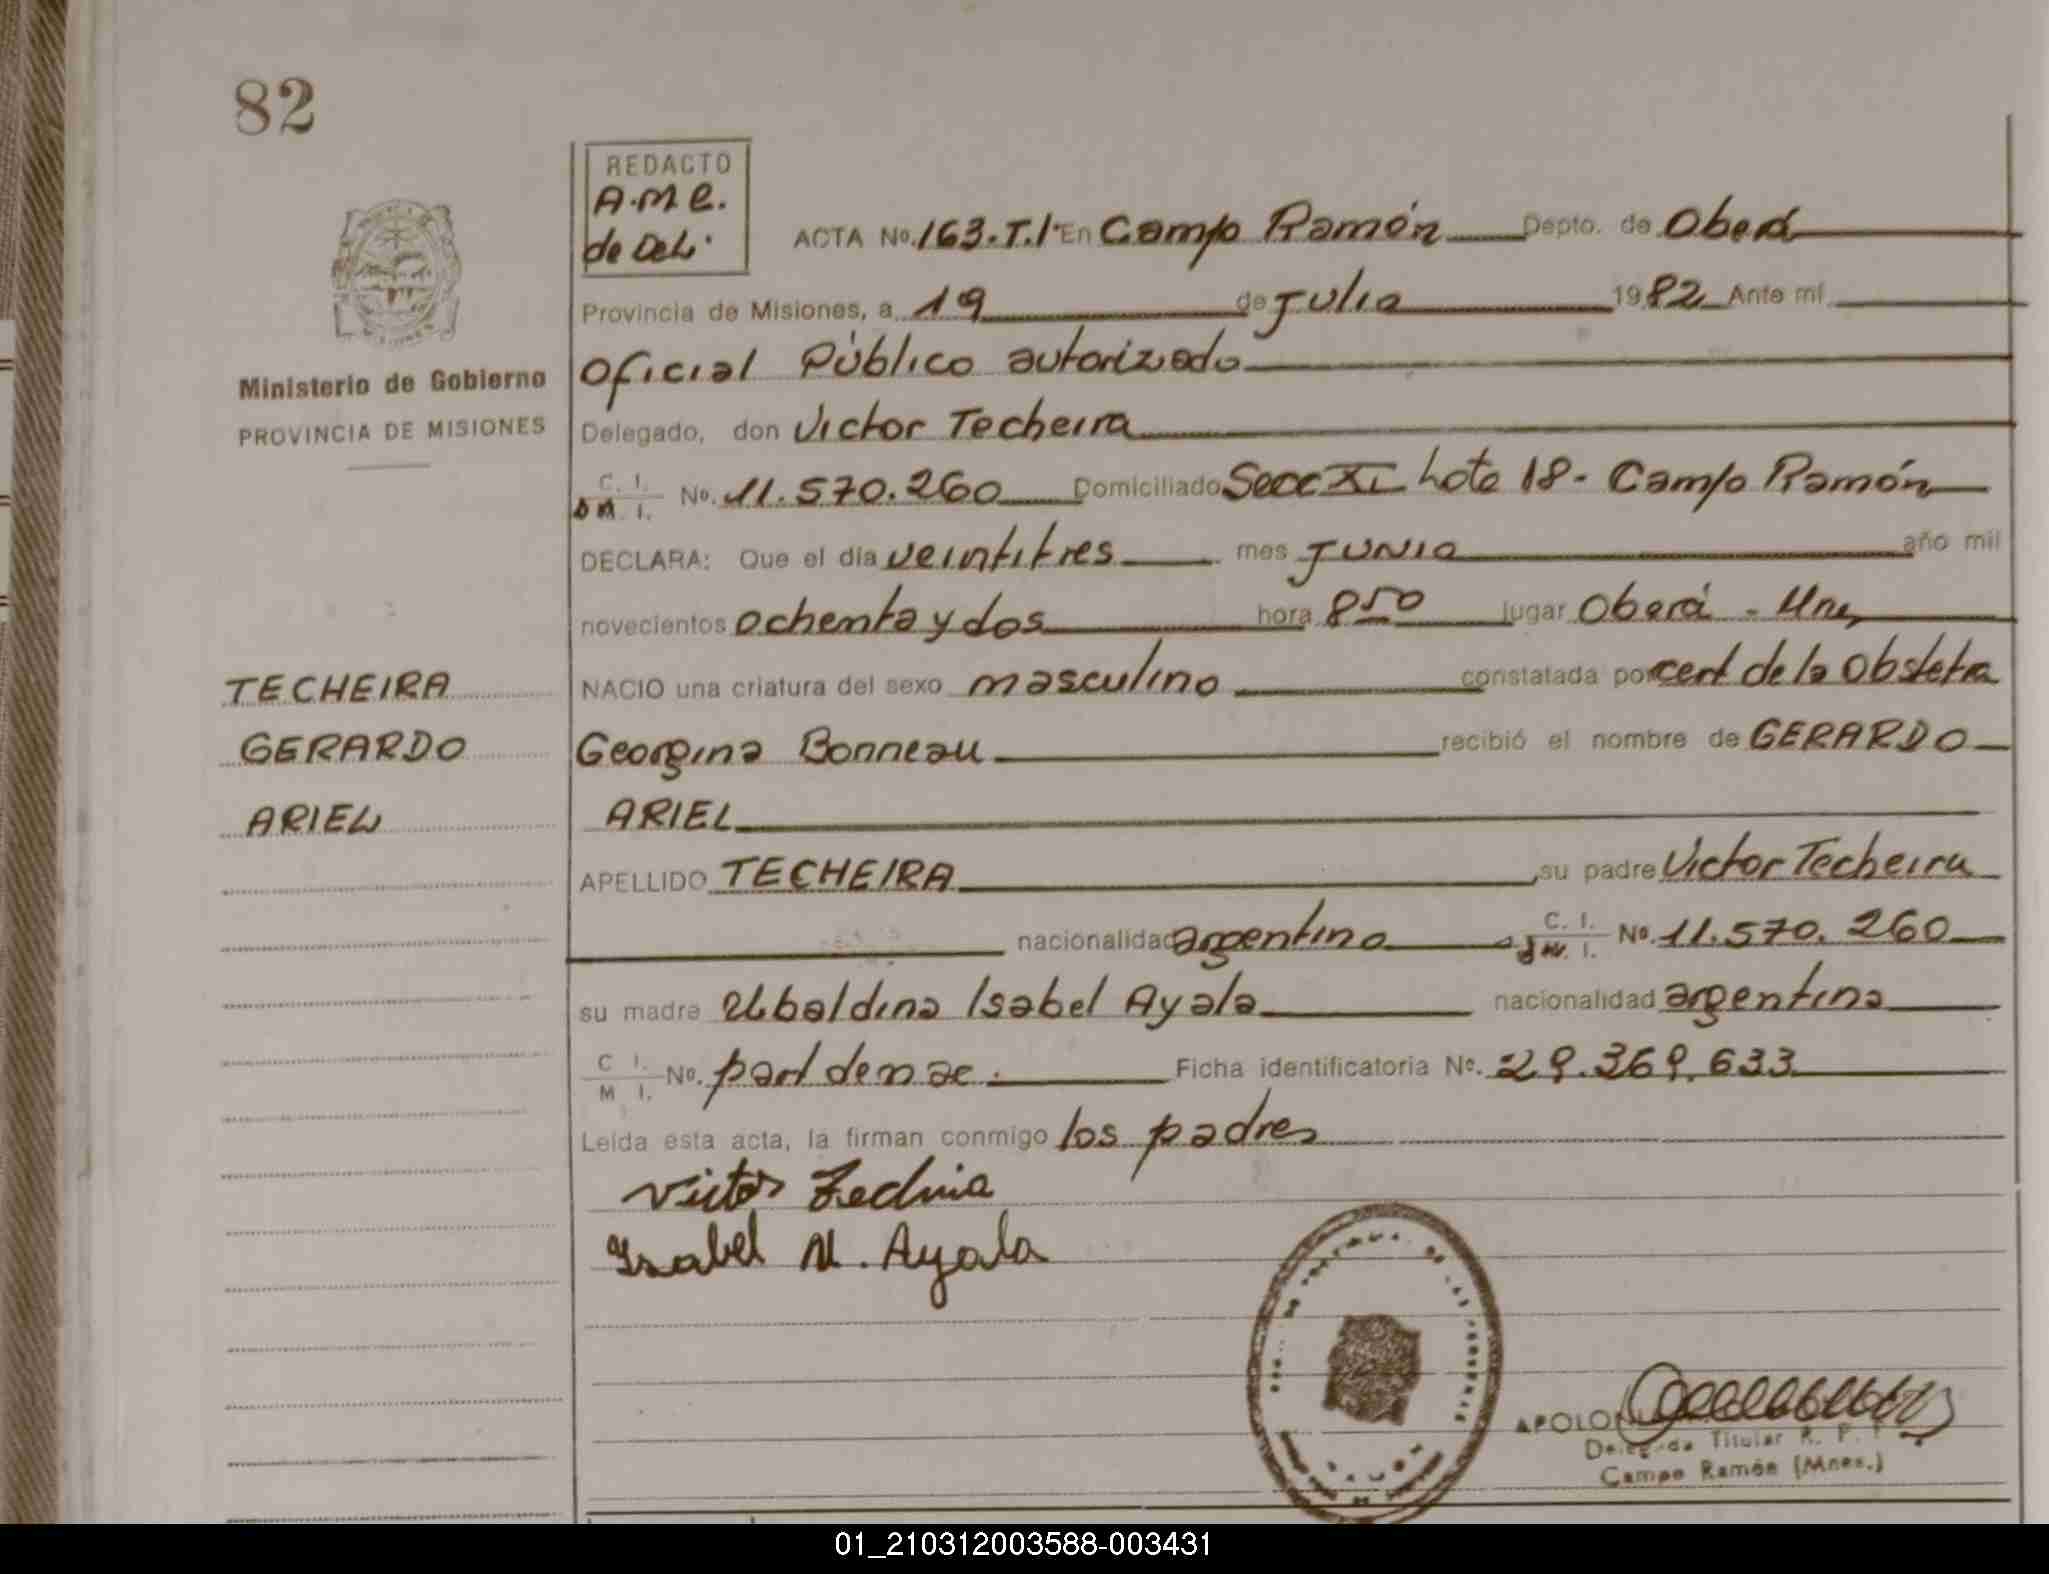 82
REDACTO
A.M.C.
de Del.
ACTA No. 163.T.1º En Campo Ramón Depto. de Oberá
Provincia de Misiones, a 19 de Julio 1982 Ante mí
Oficial Público autorizado
Ministerio de Gobierno
PROVINCIA DE MISIONES
Delegado, don Victor Techeira
C. I. No. 11.570.260 Domiciliado Secc XI Lote 18 - Campo Ramón
DN. I.
DECLARA: Que el día veintitres mes Junio año mil
novecientos ochenta y dos hora 8 50 lugar Oberá - Mnes
TECHEIRA
GERARDO
ARIEL
NACIO una criatura del sexo masculino constatada por cert de la Obstetra
Georgina Bonneau recibió el nombre de GERARDO
ARIEL
APELLIDO TECHEIRA su padre Victor Techeira
nacionalidad argentino C. I. No. 11.570.260
I.
su madre Ubaldina Isabel Ayala nacionalidad argentina
C I. No. part de nac. Ficha identificatoria No. 29.369.633
M I.
Leída esta acta, la firman conmigo los padres
Victor
Isabel U. Ayala
Delegada Titular R. P.
Campo Ramón (Mnes.)
01_210312003588-003431